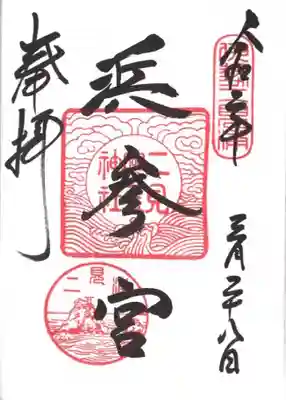 令和二年
三月二十八日
浜參宮
二見
神社
二見浦
奉拝